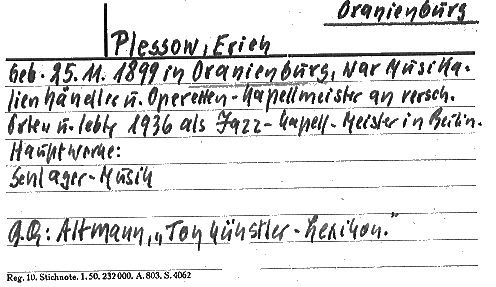 Oranienburg
Plessow, Erich
Geb. 25. 11. 1899 in Oranienburg, war Musika-
lienhändler u. Operetten-Kapellmeister an versch.
Orten u. lebte 1936 als Jazz-Kapell-Meister in Berlin.
Hauptwerke:
Schlager-Musik
Altmann, „Tonkünstler-Lexikon."
Reg. 10. Stichnote. 1. 50. 232 000. A. 803. S. 4062